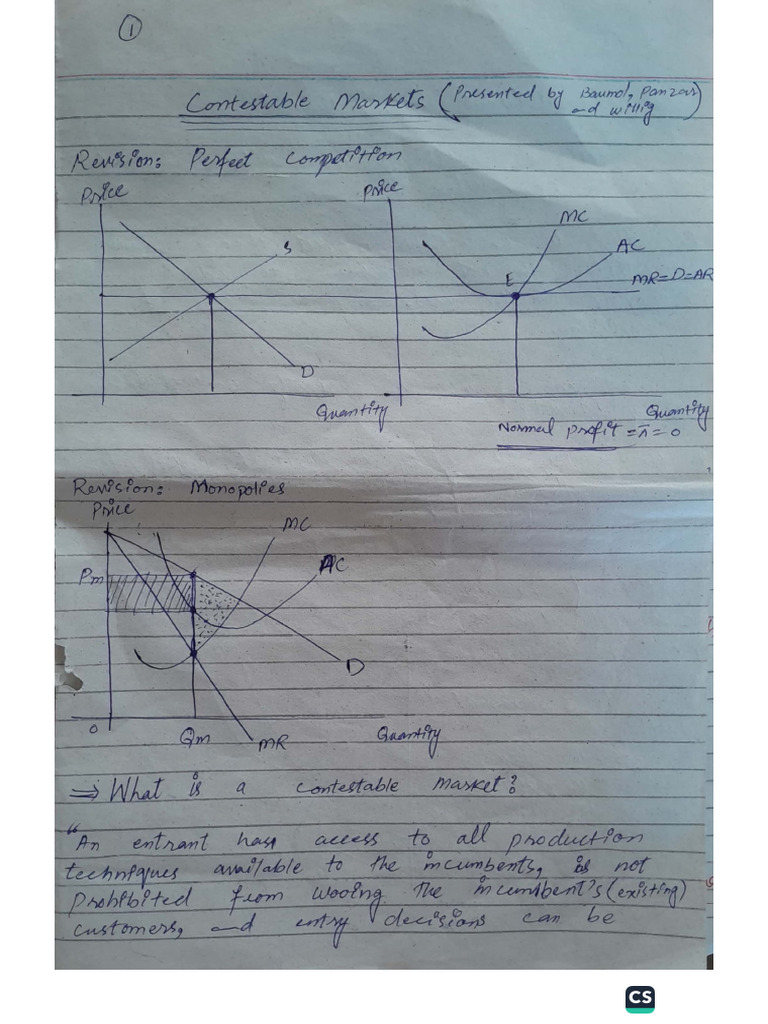 1
Contestable Markets (Presented by Baumol, Panzar
and Willig)
Revision: Perfect Competition
Price
Price
MC
S
AC
MR=D=AR
E
D
Quantity
Quantity
Normal Profit = π = 0
Revision: Monopolies
Price
MC
AC
Pm
D
0
Qm
MR
Quantity
⇒ What is a contestable market?
"An entrant has access to all production
techniques available to the incumbents, is not
prohibited from wooing the incumbent's (existing)
customers, and entry decisions can be
CS